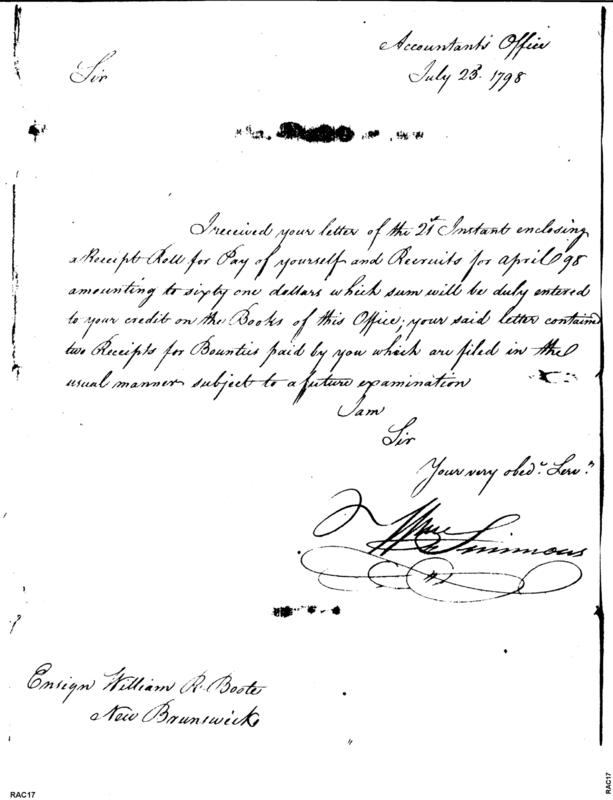 Accountants Office
Sir
July 23d. 1798
I received your letter of the 21st Instant enclosing
a Receipt Roll for Pay of yourself and Recruits for April 98
amounting to sixty one dollars which sum will be duly entered
to your credit on the Books of this Office; your said letter contained
two Receipts for Bounties paid by you which are filed in the
usual manner subject to a future examination
I am
Sir
Your very obedt. Servt.
Wm Simmons
Ensign William R. Boote
New Brunswick
RAC17
RAC17